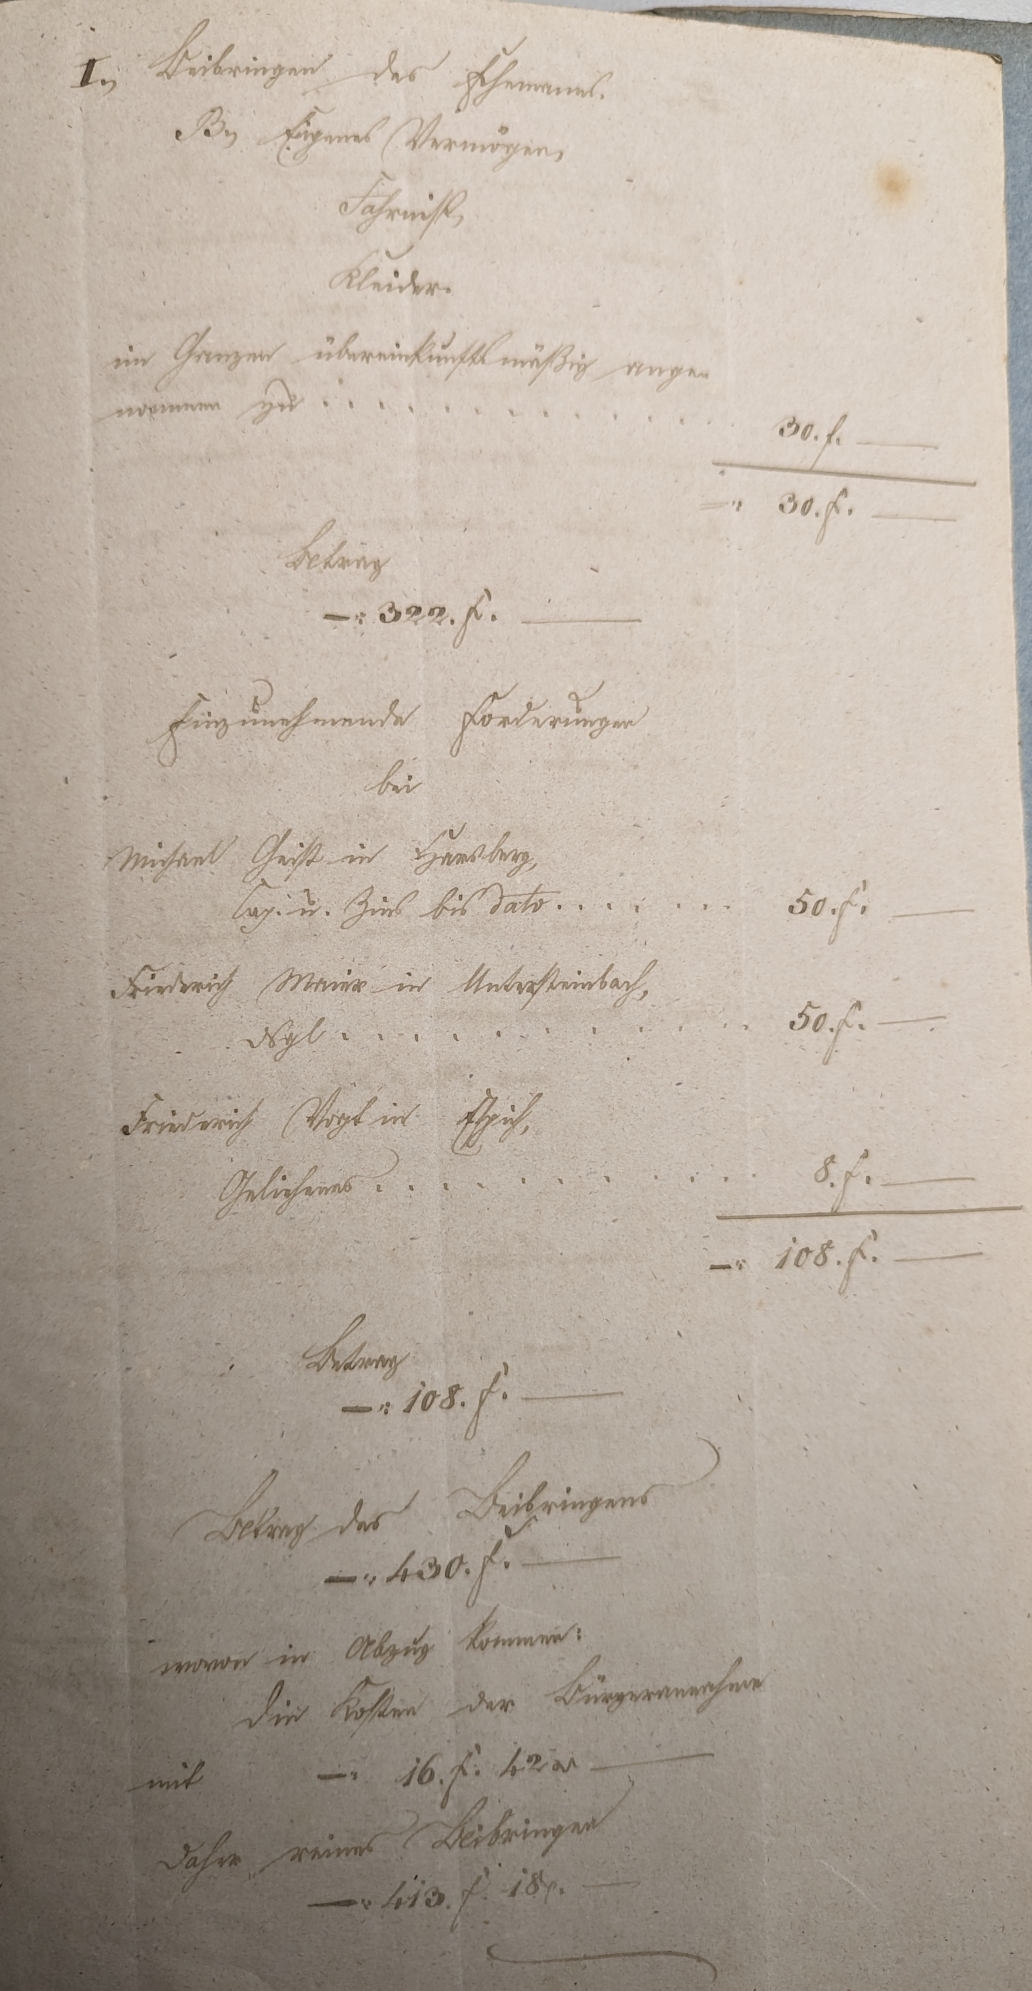 I., Beibringen des Ehemanns.
B., Eigenes Vermögen,
Fahrniß,
Kleider.
im Ganzen übereinkunftsmäßig ange
nommen zu . . . . . . . . . . . . . 30. f. —
—: 30. f. —
Betrag
—: 322. f. —
Einzunehmende Forderungen
bei
Michael Geist in Harsberg,
Cap. u. Zins bis dato . . . . . . . 50. f. —
Friederich Maier in Untersteinbach,
dsgl . . . . . . . . . . . . 50. f. —
Friederich Vogt in Espich,
Geliehenes . . . . . . . . . . . 8. f. —
—: 108. f. —
Betrag
—: 108. f. —
Betrag des Beibringens
—: 430. f. —
wovon in Abzug kommen:
die Kosten der Bürgerannahme
mit —: 16. f. 42 x —
daher reines Beibringen
—: 413. f. 18 x. —